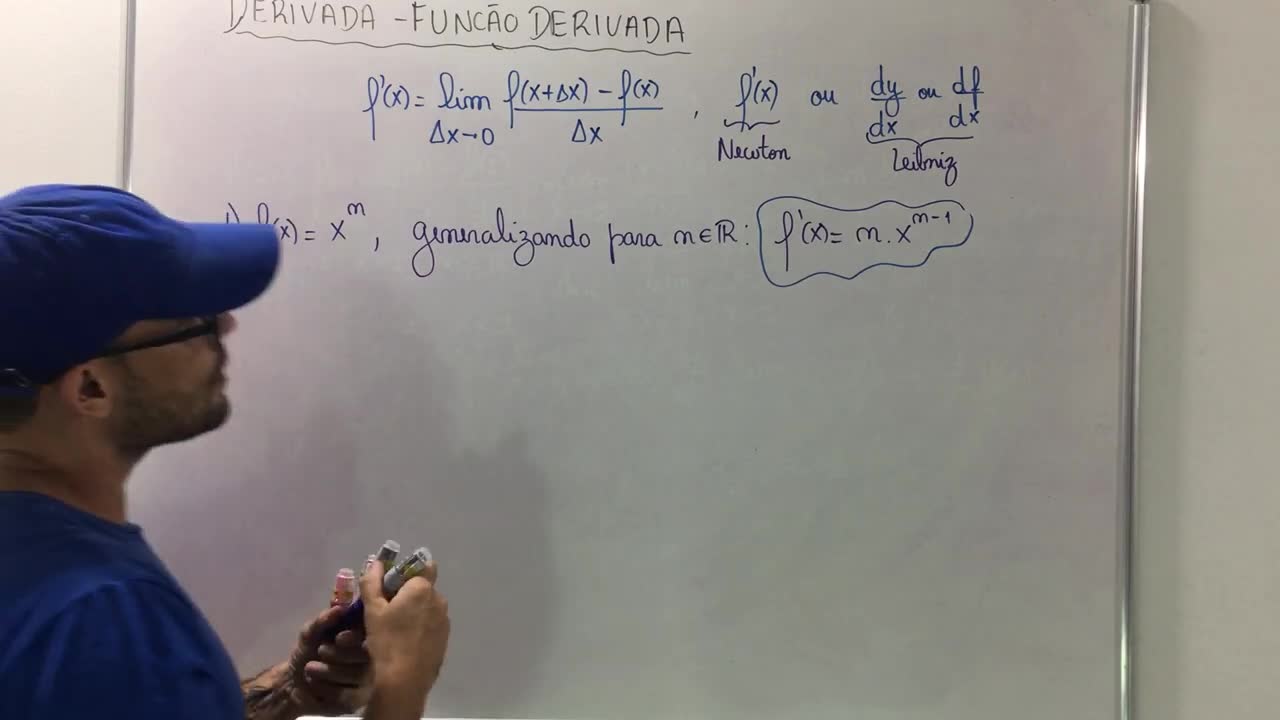 DERIVADA - FUNCÃO DERIVADA
f'(x) = lim f(x+Δx) - f(x) , f'(x) ou dy ou df
Δx→0 Δx dx dx
Newton Leibniz
f(x) = x^n, generalizando para n∈ℝ: f'(x) = n.x^(n-1)